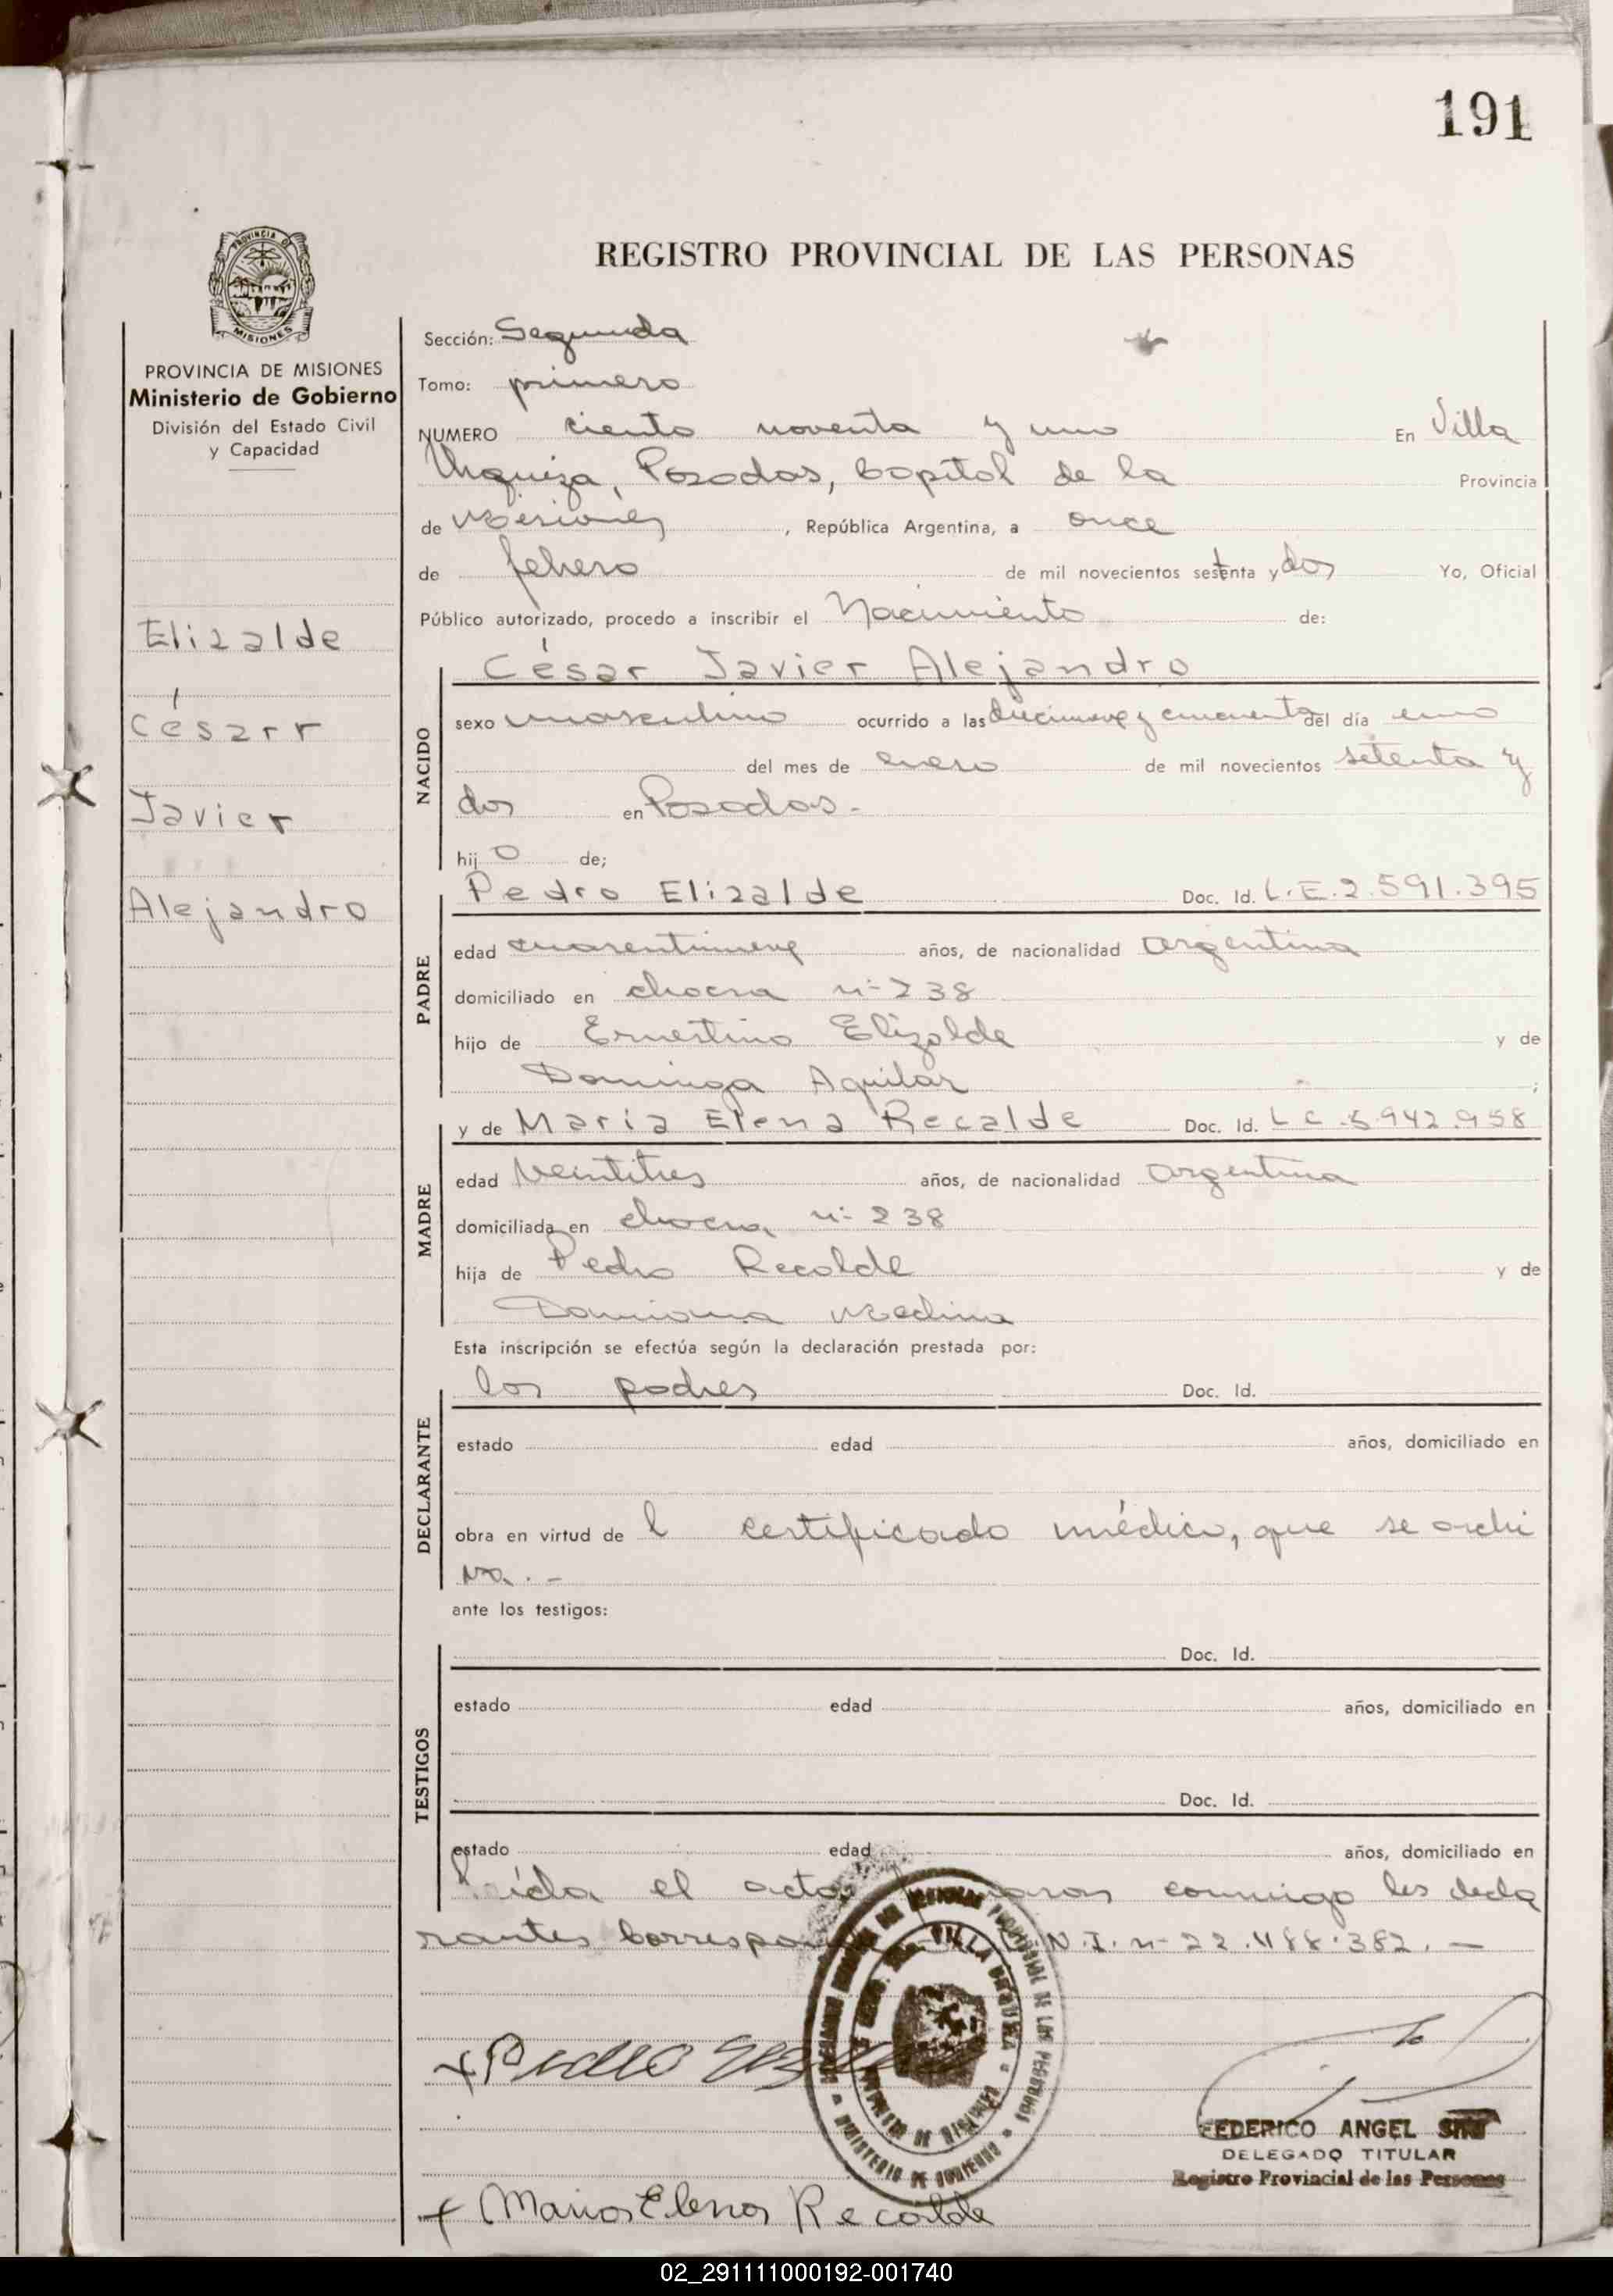 191
PROVINCIA DE
MISIONES
PROVINCIA DE MISIONES
Ministerio de Gobierno
División del Estado Civil
y Capacidad
Elizalde
Césarr
Javier
Alejandro
REGISTRO PROVINCIAL DE LAS PERSONAS
Sección: Segunda
Tomo: primero
NUMERO ciento noventa y uno En Villa
Urquiza, Posadas, Capital de la Provincia
de Misiones, República Argentina, a once
de febrero de mil novecientos setenta y dos Yo, Oficial
Público autorizado, procedo a inscribir el Nacimiento de:
César Javier Alejandro
NACIDO
sexo masculino ocurrido a las diecinueve y cincuenta del día uno
del mes de enero de mil novecientos setenta y
dos en Posadas.-
hijo de;
PADRE
Pedro Elizalde Doc. Id. L.E. 2.591.395
edad cuarentinueve años, de nacionalidad argentina
domiciliado en chacra n- 238
hijo de Ernestino Elizalde y de
Dominga Aguilar ;
MADRE
y de María Elena Recalde Doc. Id. L C .5.942.958
edad veintitres años, de nacionalidad argentina
domiciliada en chacra n- 238
hija de Pedro Recalde y de
Damiana Medina
Esta inscripción se efectúa según la declaración prestada por:
DECLARANTE
los padres Doc. Id.
estado edad años, domiciliado en
obra en virtud de l certificado médico, que se archi
va.-
ante los testigos:
TESTIGOS
Doc. Id.
estado edad años, domiciliado en
Doc. Id.
estado edad años, domiciliado en
Leída el acta conmigo los decla
rantes N.I. n- 22.488.382.-
VILLA URQUIZA
MINISTERIO DE GOBIERNO
+ Pedro
FEDERICO ANGEL
DELEGADO TITULAR
Registro Provincial de las Personas
+ Maria Elena Recalde
02_291111000192-001740